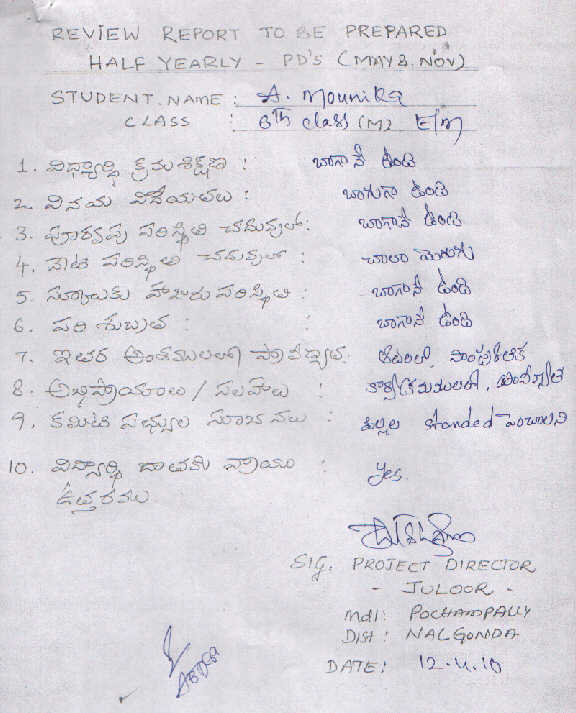 REVIEW REPORT TO BE PREPARED
HALF YEARLY - PD'S (MAY & NOV)
STUDENT NAME : A. Mounika
CLASS : 6th class (M) E/M
1. విద్యార్థి క్రమశిక్షణ : బాగానే ఉంది
2. వినయ విధేయతలు : బాగుగా ఉంది
3. పూర్వపు పరిస్థితి చదువులో : బాగానే ఉంది
4. నేటి పరిస్థితి చదువులో : చాలా మెరుగు
5. స్కూలుకు హాజరు పరిస్థితి : బాగానే ఉంది
6. పరిశుభ్రత : బాగానే ఉంది
7. ఇతర అంశములలో ప్రావీణ్యత : ఆటలలో, సాంస్కృతిక
8. అభిప్రాయాలు / సలహాలు : కార్యక్రమములలో,
9. కమిటి సభ్యుల సూచనలు : పిల్లల standed పెంచాలని
10. విద్యార్థి దాతకు వ్రాయు : yes.
ఉత్తరము
SIG. PROJECT DIRECTOR
- JULOOR -
Mdl: POCHAMPALLY
DIST: NALGONDA
DATE: 12.4.10